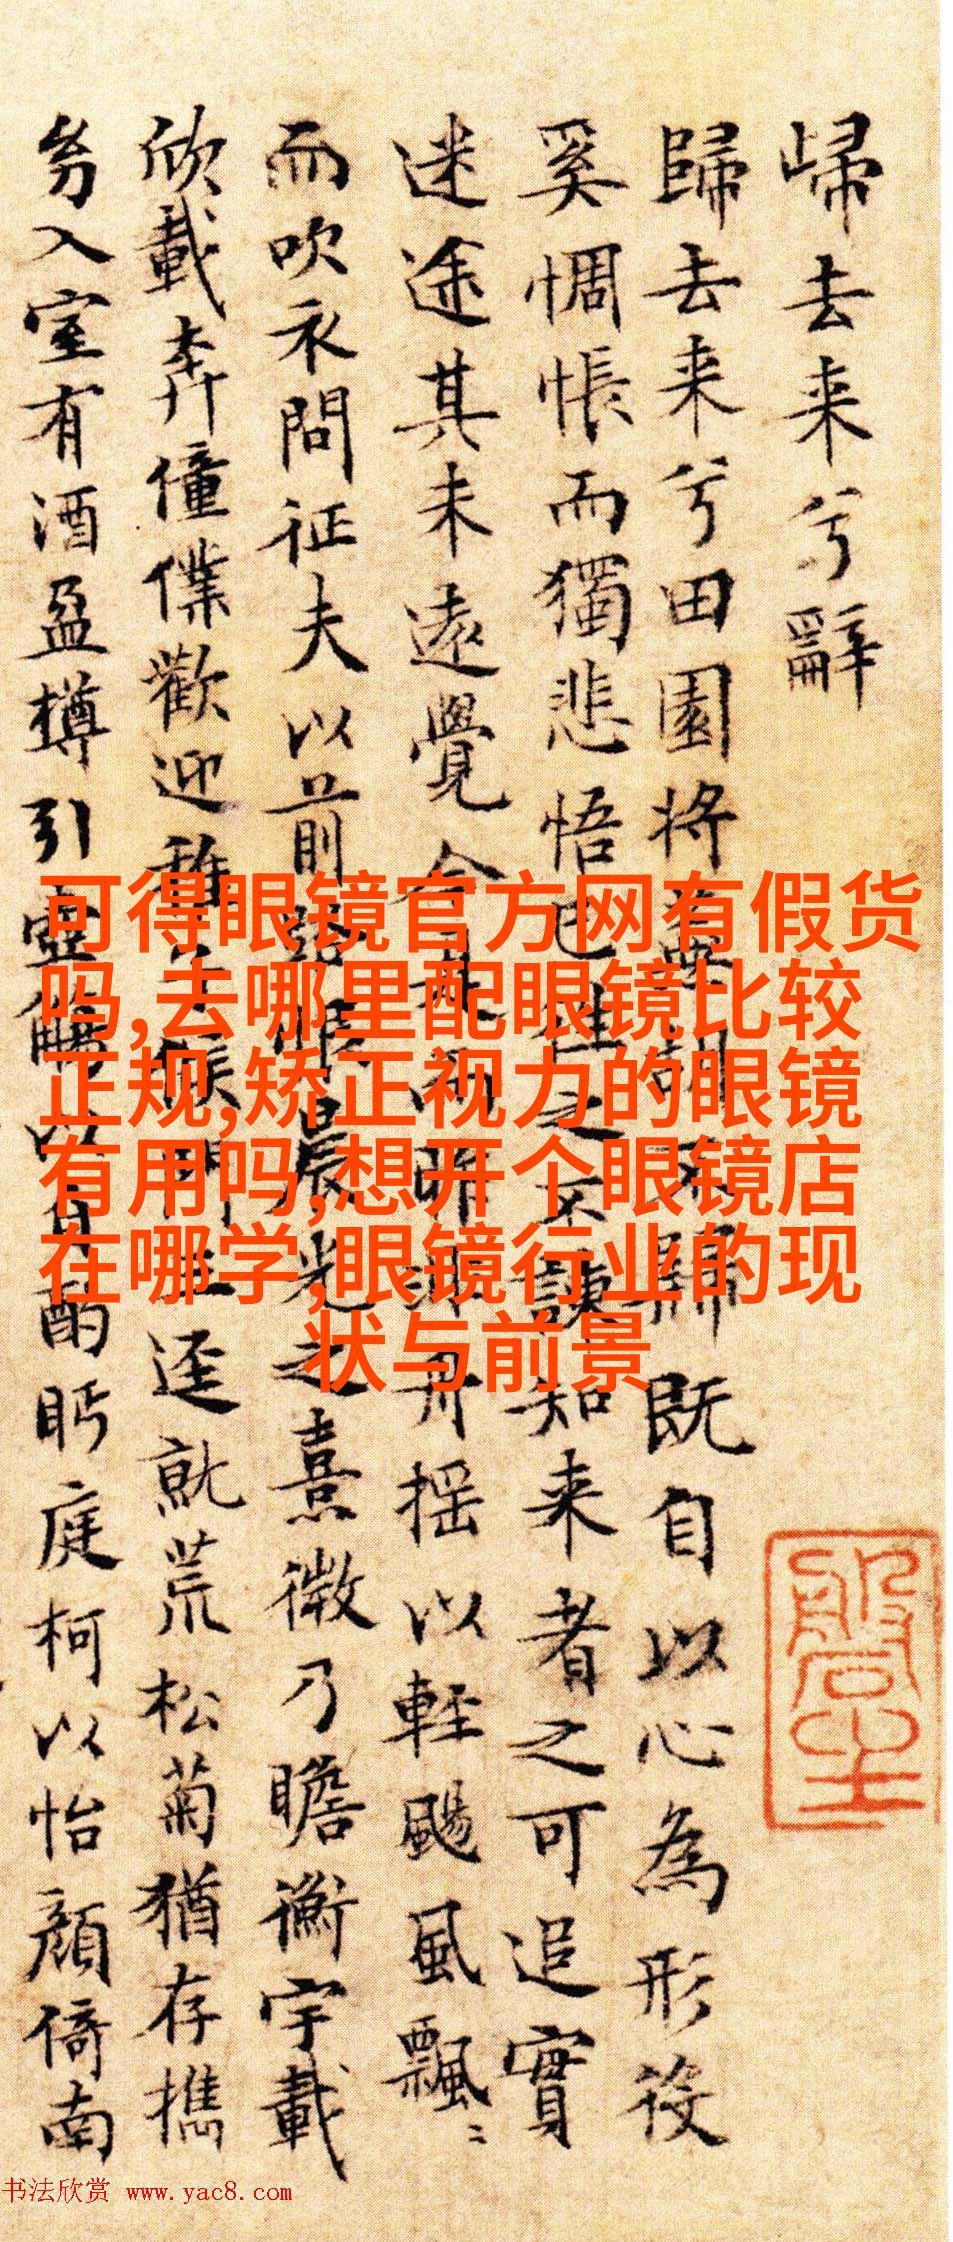 歸去来兮辭
歸去来兮田園將蕪胡不歸既自以心為形役
奚惆悵而獨悲悟已往之不諫知来者之可追實
迷途其未遠覺今是而昨非舟揺以輕颺風飄〻
而吹衣問征夫以前路恨晨光之熹微乃瞻衡宇載
欣載奔僮僕歡迎稚子候門三逕就荒松菊猶存携
幼入室有酒盈樽引壺觴以自酌眄庭柯以怡顔倚南
可得眼镜官方网有假货
吗,去哪里配眼镜比较
正规,矫正视力的眼镜
有用吗,想开个眼镜店
在哪学,眼镜行业的现
状与前景
书法欣赏 www.yac8.com